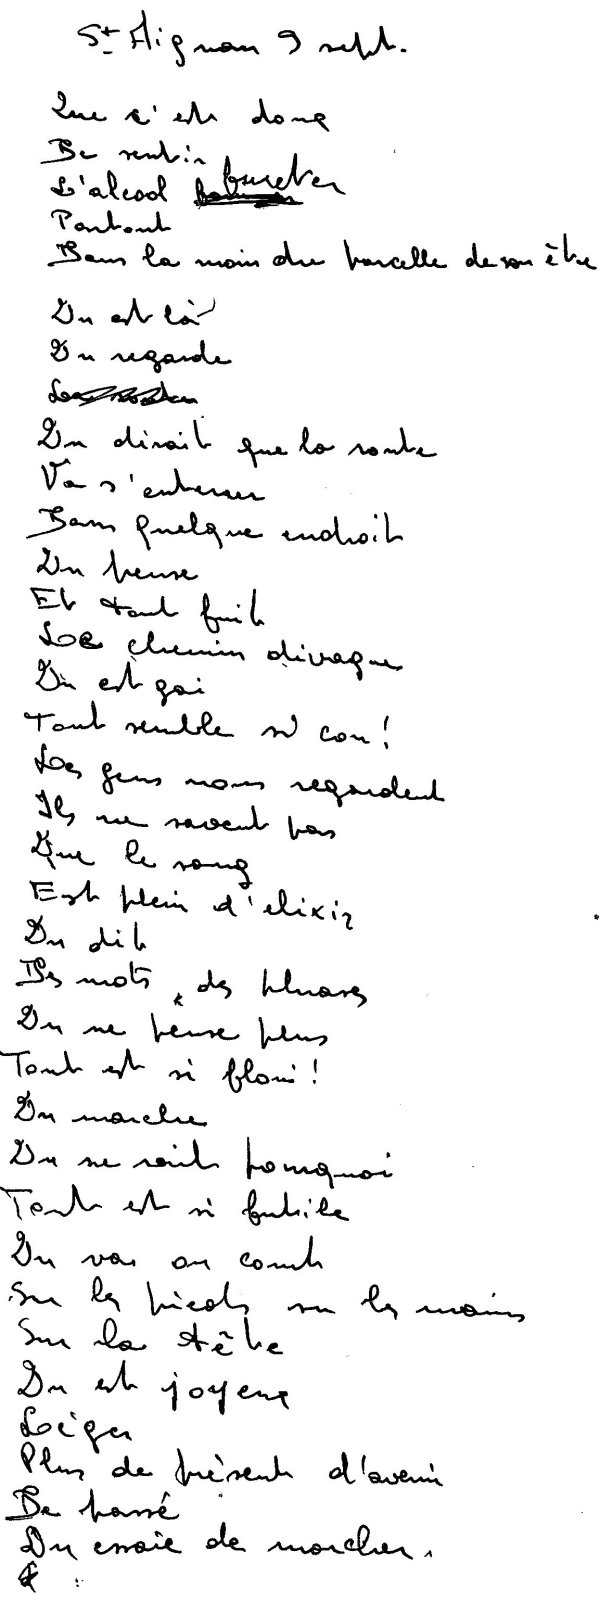 St Aignan 9 sept.
Que c'est doux
De sentir
L'alcool buveter
Partout
Dans la moindre parcelle de son être
On est là
On regarde
On dirait que la route
Va s'enterrer
Dans quelque endroit
On pense
Et tout fuit
Le chemin divague
On est gai
Tout semble si con!
Les gens nous regardent
Ils ne savent pas
Que le sang
Est plein d'elixir
On dit
Des mots, des phrases
On ne pense plus
Tout est si flou!
On marche
On ne sait pourquoi
Tout est si futile
On va on court
Sur les pieds sur les mains
Sur la tête
On est joyeux
Léger
Plus de présent d'avenir
De passé
On essaie de marcher.